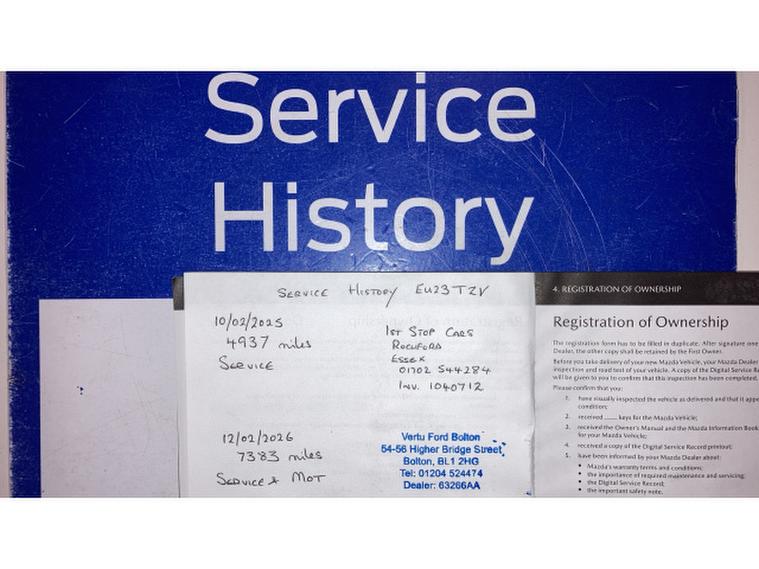 Service
History
SERVICE HISTORY EU23TZV
10/02/2025
4937 miles
SERVICE
1ST STOP CARS
ROCHFORD
ESSEX
01702 544284
INV. 1040712
12/02/2026
7383 miles
SERVICE & MOT
Vertu Ford Bolton
54-56 Higher Bridge Street,
Bolton, BL1 2HG
Tel: 01204 524474
Dealer: 63266AA
4. REGISTRATION OF OWNERSHIP
Registration of Ownership
The registration form has to be filled in duplicate. After signature one
Dealer, the other copy shall be retained by the First Owner.
Before you take delivery of your new Mazda Vehicle, your Mazda Dealer
inspection and road test of your vehicle. A copy of the Digital Service Re
will be given to you to confirm that this inspection has been completed.
Please confirm that you:
1. have visually inspected the vehicle as delivered and that it appe
condition;
2. received ....... keys for the Mazda Vehicle;
3. received the Owner's Manual and the Mazda Information Book
for your Mazda Vehicle;
4. received a copy of the Digital Service Record printout;
5. have been informed by your Mazda Dealer about:
• Mazda's warranty terms and conditions;
• the importance of required maintenance and servicing;
• the Digital Service Record;
• the important safety note.